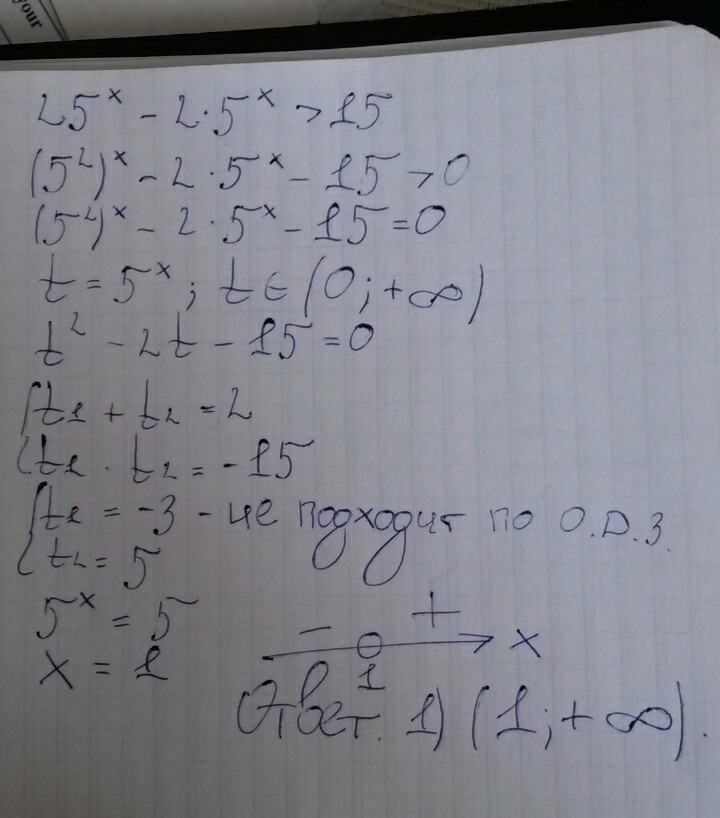 your
25^x - 2·5^x > 15
(5²)^x - 2·5^x - 15 > 0
(5²)^x - 2·5^x - 15 = 0
t = 5^x ; t ∈ (0; +∞)
t² - 2t - 15 = 0
{ t₁ + t₂ = 2
{ t₁ · t₂ = -15
{ t₁ = -3 - не подходит по О.D.З.
{ t₂ = 5
5^x = 5
x = 1
- + x
1
Ответ. 1) (1; +∞).